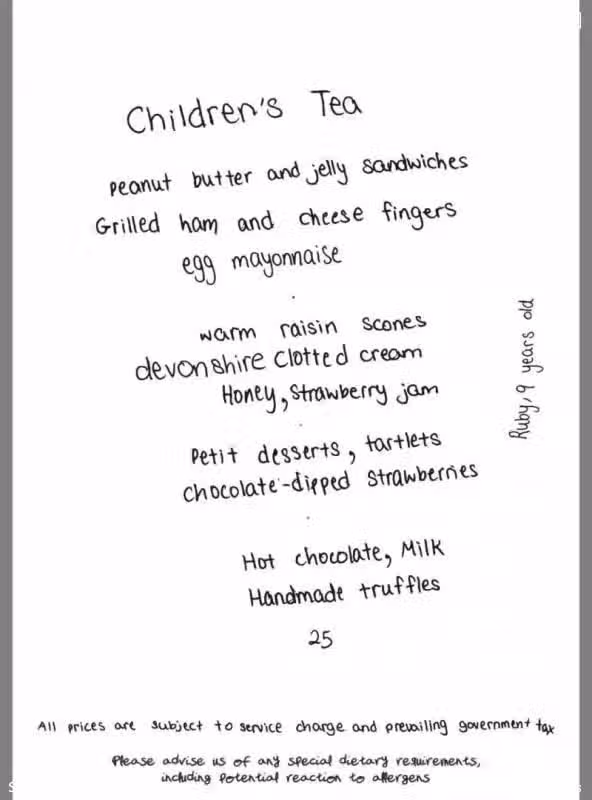 Children's Tea
peanut butter and jelly sandwiches
Grilled ham and cheese fingers
egg mayonnaise
warm raisin scones
devonshire clotted cream
Honey, Strawberry jam
Petit desserts, tartlets
chocolate-dipped strawberries
Hot chocolate, Milk
Handmade truffles
25
Ruby, 9 years old
All prices are subject to service charge and prevailing government tax
Please advise us of any special dietary requirements,
including potential reaction to allergens